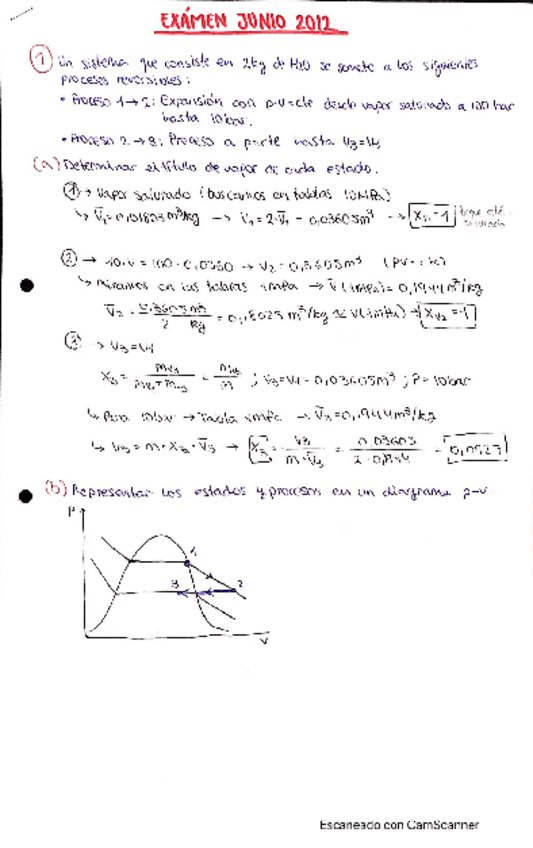 EXÁMEN JUNIO 2012
① Un sistema que consiste en 2kg de H2O se somete a los siguientes
procesos reversibles:
• Proceso 1→2: Expansión con p·v=cte desde vapor saturado a 100 bar
hasta 10 bar.
• Proceso 2→3: Proceso a p=cte hasta V3=V1
(a) Determinar el título de vapor de cada estado.
① → Vapor saturado (buscamos en tablas 10MPa)
↳ V̄1=0,01803m³/kg → V1=2·V̄1 = 0,03605m³ → Xv1=1
② → 10·V = 100·0,0360 → V2=0,3605m³
↳ Miramos en las tablas 1MPa → V̄(1MPa)=0,1944m³/kg
V̄2 = 0,3605 m³ / 2 kg = 0,1802 Xv2=1
③ → V3=V1
; V3=V1=0,03605m³ ; P=10bar
↳ Para 10bar → Tabla 1MPa → V̄3=0,1944m³/kg
↳ V3 = m·X3·V̄3 → X3 = V3 / m·V̄3 = 0,03605 / = 0,0927
(b) Representar los estados y procesos en un diagrama p-v
P
1
3 2
V
Escaneado con CamScanner